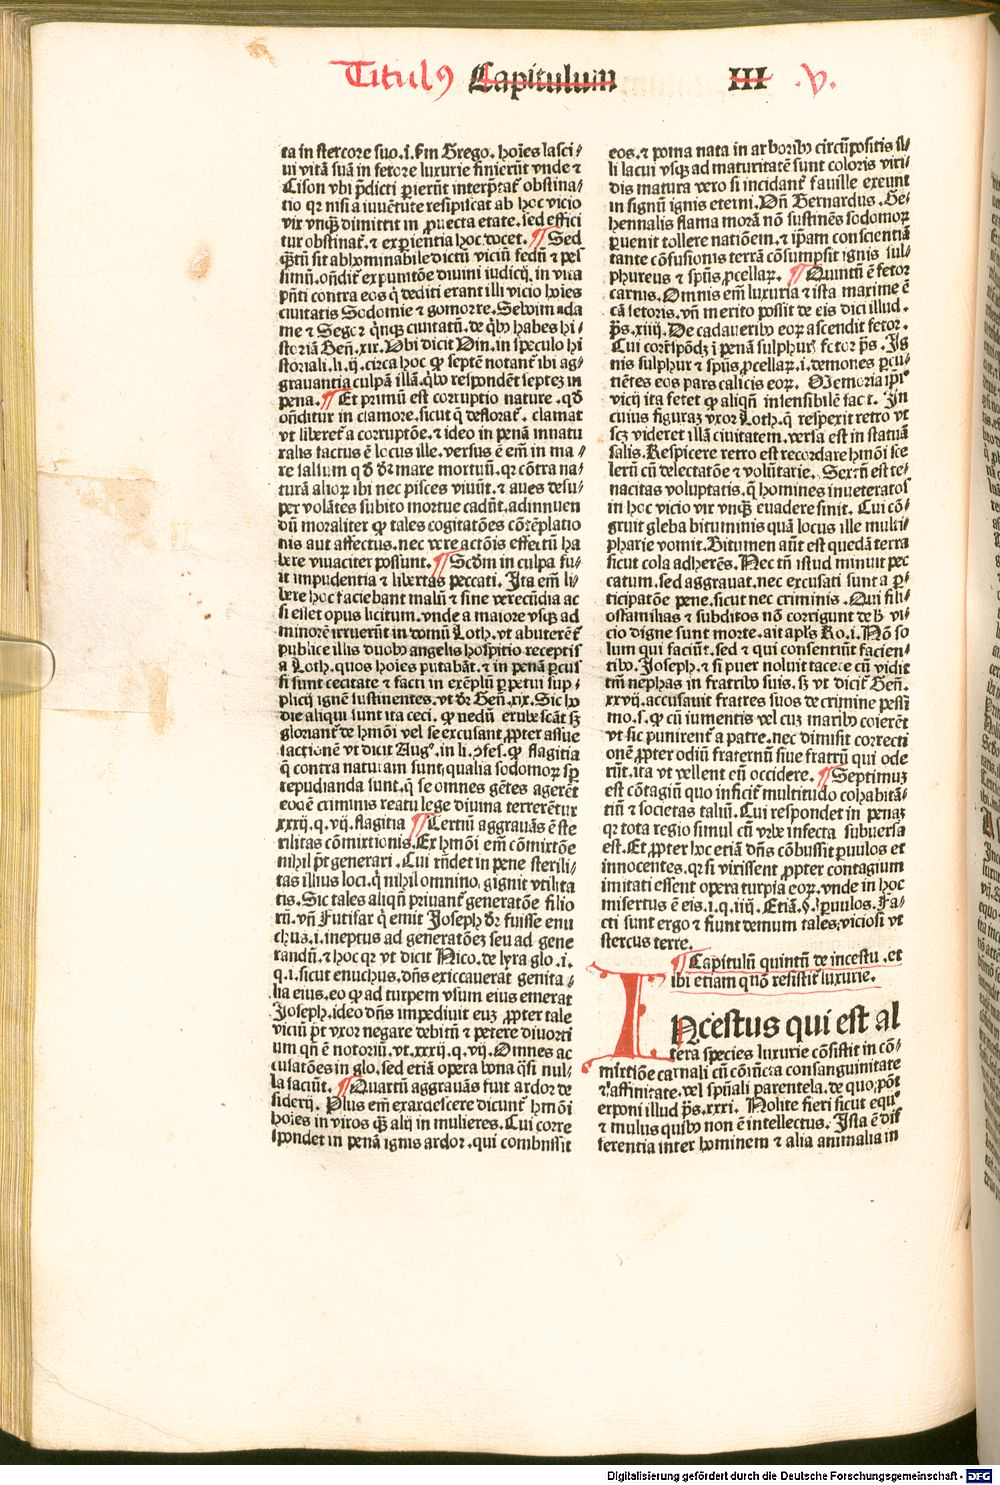 Titulꝰ Capitulum III .V.
ta in stercore suo.i. fm Grego. hoi͂es lasci/
ui vitā suā in fetore luxurie finierūt vnde ⁊
Cison vbi p̄dicti ꝑierūt interp̄tat᷑ obstina/
tio qꝛ nisi a iuuētute resipiscat ab hoc vicio
vir vnqꝫ dimittit in ꝓuecta etate. sed effici
tur obstinat᷑. ⁊ exꝑientia hoc docet. ¶ Sed
qꝫtū sit abhominabile dictū viciū fedū ⁊ pes
simū. oñdit᷑ ex punitōe diuini iudicij. in vita
pñti contra eos q̇ dediti erant illi vicio hoi͂es
ciuitatis Sodomie ⁊ gomorre. Seboim ada
me ⁊ Segor q̇nqꝫ ciuitatū. de qͥbꝰ habes hi/
storiā Geñ.xix. Vbi dicit Vin. in speculo hi
storiali. li.ij. circa hoc ꝙ septē notant᷑ ibi ag/
grauantia culpā illā. qͥbꝰ respondēt septez in
pena. ¶ Et primū est corruptio nature. qd̄
oñditur in clamore. sicut q̄ deflorat᷑. clamat
vt liberet᷑ a corruptōe. ⁊ ideo in penā innatu
ralis factus ē locus ille. versus ē em̄ in ma/
re salium qd̄ d᷑r mare mortuū. qꝛ cōtra na/
turā alioꝝ ibi nec pisces viuūt. ⁊ aues desu/
per volātes subito mortue cadūt. ad innuen
dū moraliter ꝙ tales cogitatōes cōtēplatio
nis aut affectus. nec vere actōis effectū ha
bere viuaciter possunt. ¶ Scd̄m in culpa fu/
it impudentia ⁊ libertas peccati. Ita em̄ li/
bere hoc faciebant malū ⁊ sine verecūdia ac
si esset opus licitum. vnde a maiore vsqꝫ ad
minorē irruerūt in domū Loth. vt abuterēt᷑
publice illis duobꝰ angelis hospitio receptis
a Loth. quos hoi͂es putabāt. ⁊ in penā ꝑcus
si sunt cecitate ⁊ facti in exēplū ꝑpetui sup/
plicij ignē sustinentes. vt d᷑r Geñ.xix. Sic ho
die aliqui sunt ita ceci. ꝙ nedū erubescāt sꝫ
gloriant᷑ de hmōi vel se excusant ꝓpter assue
factionē vt dicit Augꝰ. in li. ꝯfes. ꝙ flagitia
q̄ contra naturam sunt. qualia sodomoꝝ sp̄
repudianda sunt. q̄ se omnes gētes agerēt
eodē criminis reatu lege diuina terrerētur
xxxij. q. vij. flagitia ¶ Tertiū aggrauās ē ste
rilitas cōmixtionis. Ex hmōi em̄ cōmixtōe
nihil p̄t generari. Cui rñdet in pene sterili/
tas illius loci. q̇ nihil omnino. gignit vtilita
tis. Sic tales aliqñ priuant᷑ generatōe filio
rū. vñ Futifar q̇ emit Joseph d᷑r fuisse enu
chus.i. ineptus ad generatōez seu ad gene
randū. ⁊ hoc qꝛ vt dicit Nico. de lyra glo.i.
q.i. sicut enuchus. dñs exiccauerat genita/
lia eius. eo ꝙ ad turpem vsum eius emerat
Joseph. ideo dñs impediuit euꝫ ꝓpter tale
viciū p̄t vxor negare debitū ⁊ petere diuorti
um qñ ē notoriū. vt.xxxij. q. vij. Omnes ac
culatōes in glo. sed etiā opera bona q̄si nul/
la faciūt. ¶ Quartū aggrauās fuit ardor de
siderij. Plus em̄ exardescere dicunt᷑ hmōi
hoi͂es in viros qꝫ alij in mulieres. Cui corre
spondet in penā ignis ardor. qui combussit
eos. ⁊ poma nata in arboribꝰ circūpositis il/
li lacui vsqꝫ ad maturitatē sunt coloris viri/
dis matura vero si incidant᷑ fauille exeunt
in signū ignis eterni. Vñ Bernardus. Ge/
hennalis flama morā nō sustinēs sodomoꝝ
ꝑuenit tollere natiōem. ⁊ ip̄am conscientiā
tante cōfusionis terrā cōsumpsit ignis sul/
phureus ⁊ spūs ꝓcellaꝝ. ¶ Quintū ē fetor
carnis. Omnis em̄ luxuria ⁊ ista maxime ē
cā fetoris. vñ merito possit de eis dici illud.
ps̄.xiiij. De cadaueribꝰ eoꝝ ascendit fetor.
Cui corr̄spōdꝫ ī penā sulphuꝝ fetor ps̄. Ig
nis sulphur ⁊ spūs ꝓcellaꝝ.i. demones ꝑcu/
tiētes eos pars calicis eoꝝ. Memoria ip̄i᷒
vicij ita fetet ꝙ aliqñ insensibilē facit. In
cuius figuraꝫ vxor Loth. q̄ respexit retro vt
scꝫ videret illā ciuitatem. versa est in statuā
salis. Respicere retro est recordare hmōi sce
lerū cū delectatōe ⁊ volūtarie. Sextū est te/
nacitas voluptatis. q̄ homines inueteratos
in hoc vicio vir vnqꝫ euadere sinit. Cui cō/
gruit gleba bituminis quā locus ille multi/
pharie vomit. Bitumen aūt est quedā terra
sicut cola adherēs. Nec tñ istud minuit pec
catum. sed aggrauat. nec excusati sunt a ꝑ/
ticipatōe pene. sicut nec criminis. Qui fili/
osfamilias ⁊ subditos nō corrigunt de ɦ vi/
cio digne sunt morte. ait apl̄s Ro.i. Nō so
lum qui faciūt. sed ⁊ qui consentiūt facien/
tibꝰ. Joseph. ⁊ si puer noluit tacere cū vidit
tm̄ nephas in fratribꝰ suis. sꝫ vt dicit᷑ Geñ.
xxvij. accusauit fratres suos de crimine pessi
mo.s. ꝙ cū iumentis vel cuꝫ maribꝰ coierēt
vt sic punirent᷑ a patre. nec dimisit correcti
onē ꝓpter odiū fraternū siue fratrū qui ode
rūt. ita vt vellent eū occidere. ¶ Septimuꝫ
est cōtagiū quo inficit᷑ multitudo cohabitā/
tiū ⁊ societas taliū. Cui respondet in penaꝫ
qꝛ tota regio simul cū vrbe infecta subuersa
est. Et ꝓpter hoc etiā dñs cōbussit ꝑuulos et
innocentes. qꝛ si vixissent ꝓpter contagium
imitati essent opera turpia eoꝝ. vnde in hoc
misertus ē eis.i. q. iiij. Etiā. §. Paruulos. Fa/
cti sunt ergo ⁊ fiunt demum tales. viciosi vt
stercus terre.
¶ Capitulū quintū de incestu. et
ibi etiam quō resistit᷑ luxurie.
INcestus qui est al
tera species luxurie cōsistit in cō/
mixtiōe carnali cū cōiūcta consanguinitate
⁊ affinitate. vel spūali parentela. de quo pōt
exponi illud ps̄.xxxi. Nolite fieri sicut equꝰ
⁊ mulus quibꝰ non ē intellectus. Ista ē dif
ferentia inter hominem ⁊ alia animalia in
Digitalisierung gefördert durch die Deutsche Forschungsgemeinschaft - DFG